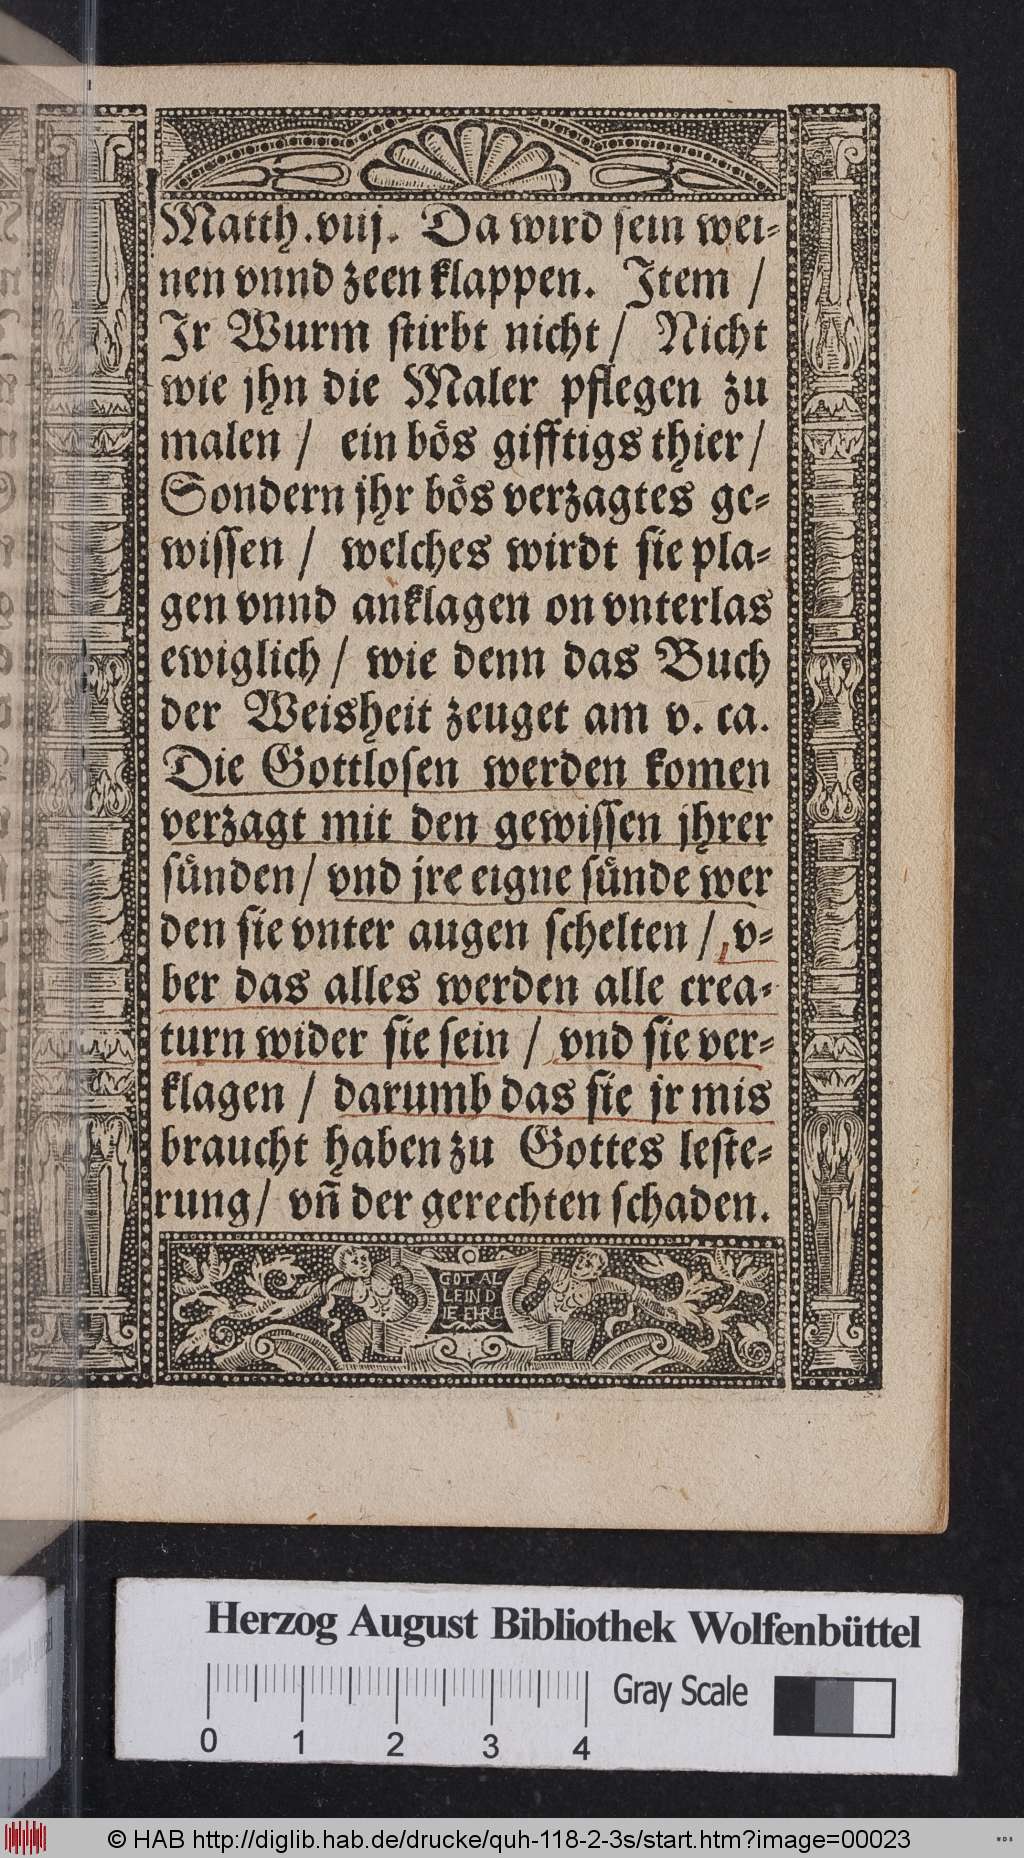 Matth.viij. Da wird sein wei-
nen vnnd zeen klappen. Item /
Ir Wurm stirbt nicht / Nicht
wie jhn die Maler pflegen zu
malen / ein bös gifftigs thier /
Sondern jhr bös verzagtes ge-
wissen / welches wirdt sie pla-
gen vnnd anklagen on vnterlas
ewiglich / wie denn das Buch
der Weisheit zeuget am v. ca.
Die Gottlosen werden komen
verzagt mit den gewissen jhrer
sünden / vnd jre eigne sünde wer
den sie vnter augen schelten / v-
ber das alles werden alle crea-
turn wider sie sein / vnd sie ver-
klagen / darumb das sie jr mis
braucht haben zu Gottes leste-
rung / vñ der gerechten schaden.
GOT AL
LEIN D
IE EHRE
Herzog August Bibliothek Wolfenbüttel
Gray Scale
0 1 2 3 4
© HAB http://diglib.hab.de/drucke/quh-118-2-3s/start.htm?image=00023